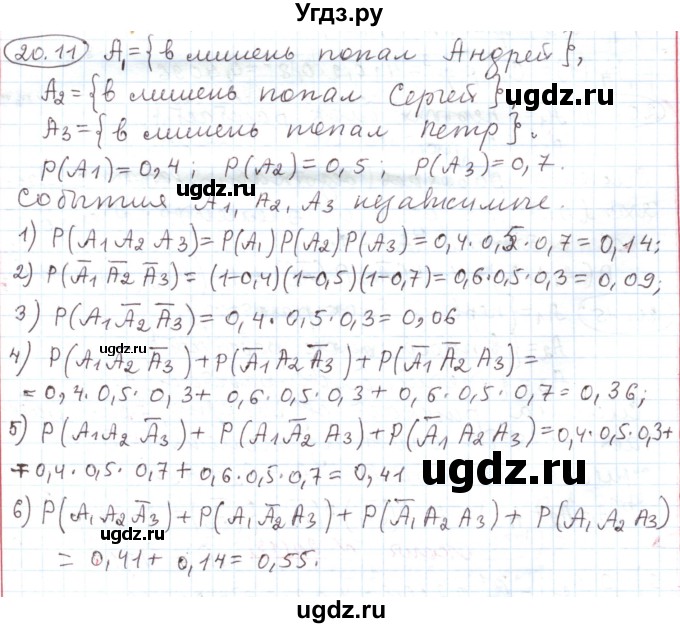 Угdз.ру
20.11 A₁={в мишень попал Андрей},
A₂={в мишень попал Сергей},
ugdz.ru
A₃={в мишень попал Петр}.
P(A₁)=0,4; P(A₂)=0,5; P(A₃)=0,7.
ugdz.ru
События A₁, A₂, A₃ независимые.
1) P(A₁A₂A₃)=P(A₁)P(A₂)P(A₃)=0,4·0,5·0,7=0,14;
2) P(A̅₁A̅₂A̅₃)=(1-0,4)(1-0,5)(1-0,7)=0,6·0,5·0,3=0,09;
3) P(A₁A̅₂A̅₃)=0,4·0,5·0,3=0,06
ugdz.ru
4) P(A₁A̅₂A̅₃)+P(A̅₁A₂A̅₃)+P(A̅₁A̅₂A₃)=
=0,4·0,5·0,3+0,6·0,5·0,3+0,6·0,5·0,7=0,36;
5) P(A₁A₂A̅₃)+P(A₁A̅₂A₃)+P(A̅₁A₂A₃)=0,4·0,5·0,3+
+0,4·0,5·0,7+0,6·0,5·0,7=0,41
ugdz.ru
ugdz.ru
6) P(A₁A₂A̅₃)+P(A₁A̅₂A₃)+P(A̅₁A₂A₃)+P(A₁A₂A₃)
=0,41+0,14=0,55.
ugdz.ru
ugdz.ru